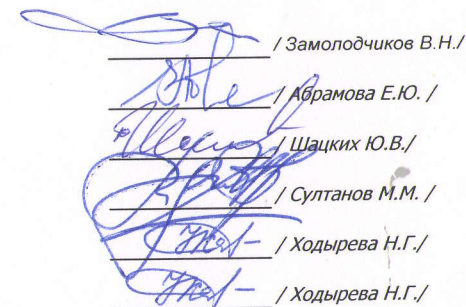 / Замолодчиков В.Н./
/ Абрамова Е.Ю. /
/ Шацких Ю.В./
/ Султанов М.М. /
/ Ходырева Н.Г./
/ Ходырева Н.Г./